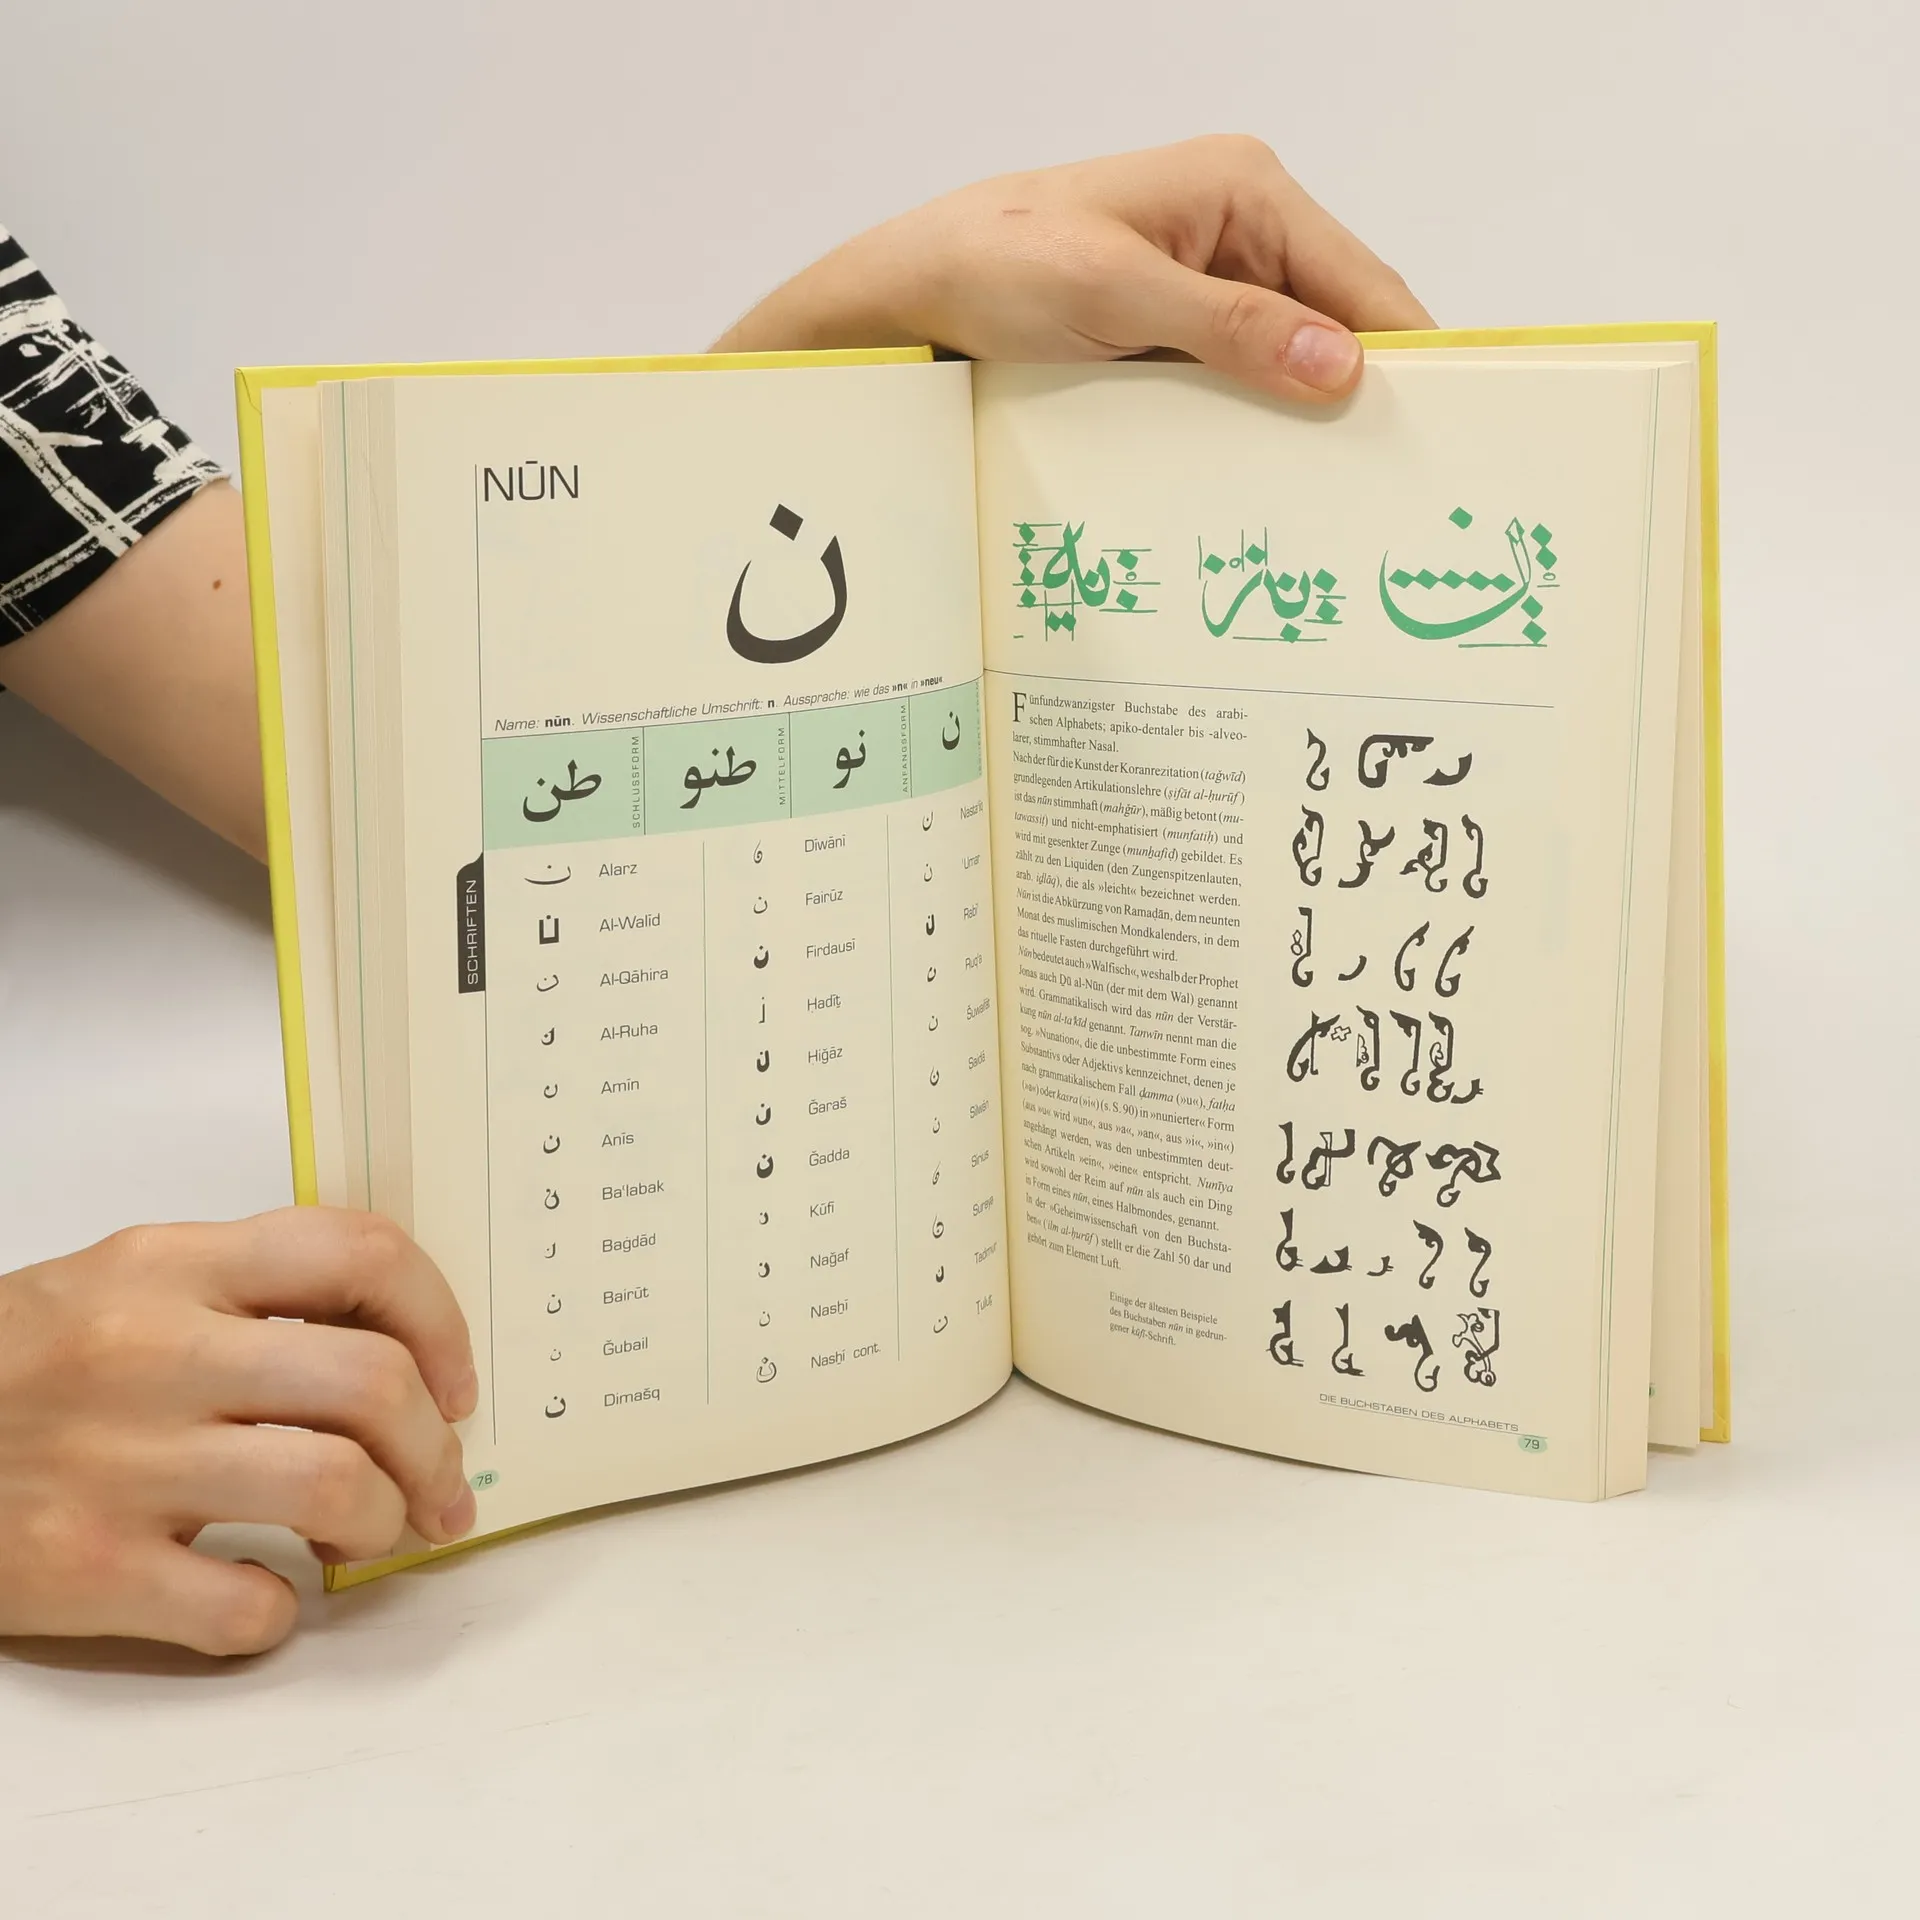 NŪN
ن
Name: nūn. Wissenschaftliche Umschrift: n. Aussprache: wie das »n« in »neu«
طن
SCHLUSSFORM
طنو
MITTELFORM
نو
ANFANGSFORM
ن
SCHRIFTEN
ن Alarz
ن Al-Walīd
ن Al-Qāhira
ن Al-Ruha
ن Amīn
ن Anīs
ن Ba'labak
ن Baġdād
ن Bairūt
ن Ğubail
ن Dimašq
ن Dīwānī
ن Fairūz
ن Firdausī
ن Ḥadīṯ
ن Ḥiğāz
ن Ğaraš
ن Ğadda
ن Kūfī
ن Nağaf
ن Nasḫī
ن Nasḫī cont.
ن
ن 'Umar
ن Rabī'
ن Ruq'a
ن
ن Saidā
ن Silwān
ن Sirius
ن Sureya
ن Tadmur
ن Ṯuluṯ
78
Fünfundzwanzigster Buchstabe des arabi-
schen Alphabets; apiko-dentaler bis -alveo-
larer, stimmhafter Nasal.
Nach der für die Kunst der Koranrezitation (tağwīd)
grundlegenden Artikulationslehre (ṣifāt al-ḥurūf)
ist das nūn stimmhaft (mahğūr), mäßig betont (mu-
tawassiṭ) und nicht-emphatisiert (munfatiḥ) und
wird mit gesenkter Zunge (munḫafiḍ) gebildet. Es
zählt zu den Liquiden (den Zungenspitzenlauten,
arab. iḏlāq), die als »leicht« bezeichnet werden.
Nūn ist die Abkürzung von Ramaḍān, dem neunten
Monat des muslimischen Mondkalenders, in dem
das rituelle Fasten durchgeführt wird.
Nūn bedeutet auch »Walfisch«, weshalb der Prophet
Jonas auch Ḏū al-Nūn (der mit dem Wal) genannt
wird. Grammatikalisch wird das nūn der Verstär-
kung nūn al-ta'kīd genannt. Tanwīn nennt man die
sog. »Nunation«, die die unbestimmte Form eines
Substantivs oder Adjektivs kennzeichnet, denen je
nach grammatikalischem Fall ḍamma (»u«), fatḥa
(»a«) oder kasra (»i«) (s. S. 90) in »nunierter« Form
(aus »u« wird »un«, aus »a«, »an«, aus »i«, »in«)
angehängt werden, was den unbestimmten deut-
schen Artikeln »ein«, »eine« entspricht. Nunīya
wird sowohl der Reim auf nūn als auch ein Ding
in Form eines nūn, eines Halbmondes, genannt.
In der »Geheimwissenschaft von den Buchsta-
ben« ('ilm al-ḥurūf) stellt er die Zahl 50 dar und
gehört zum Element Luft.
Einige der ältesten Beispiele
des Buchstaben nūn in gedrun-
gener kūfī-Schrift.
DIE BUCHSTABEN DES ALPHABETS
79